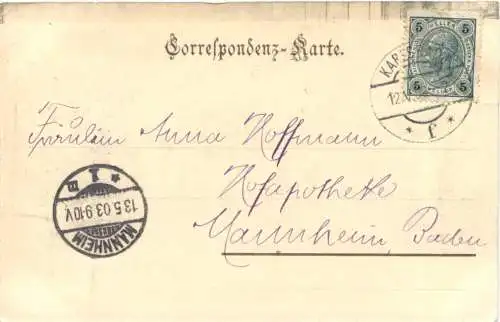 Correspondenz-Karte.
5 HELLER 5
5 5
12.V
* f *
Fräulein Anna Hoffmann
Hofapotheke
Mannheim, Baden
MANNHEIM
13.5.03.9-10V.
* 1 m